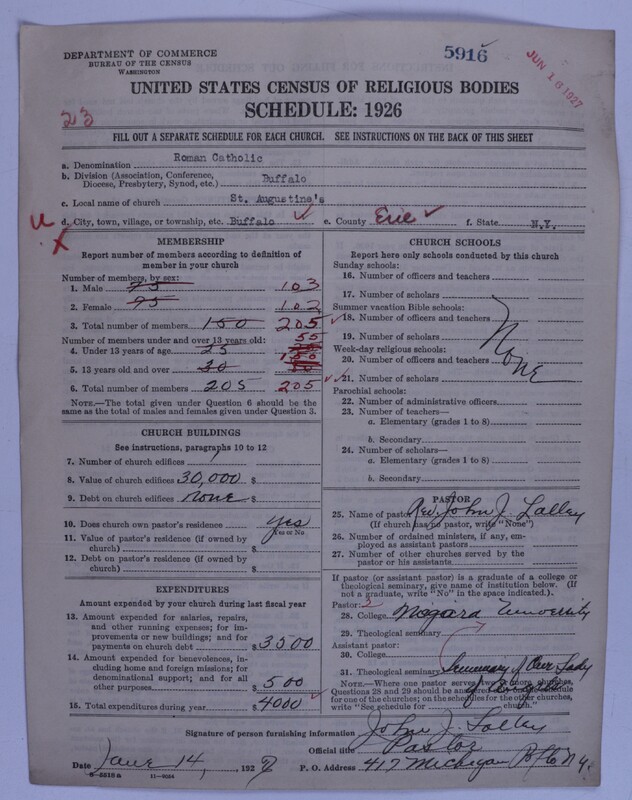 DEPARTMENT OF COMMERCE
BUREAU OF THE CENSUS
WASHINGTON
5916
JUN 16 1927
UNITED STATES CENSUS OF RELIGIOUS BODIES
SCHEDULE: 1926
23
FILL OUT A SEPARATE SCHEDULE FOR EACH CHURCH. SEE INSTRUCTIONS ON THE BACK OF THIS SHEET
a. Denomination Roman Catholic
b. Division (Association, Conference, Diocese, Presbytery, Synod, etc.) Buffalo
c. Local name of church St. Augustine's
u d. City, town, village, or township, etc. Buffalo e. County Erie f. State N.Y.
X
MEMBERSHIP
Report number of members according to definition of
member in your church
Number of members, by sex:
1. Male 75 103
2. Female 75 102
3. Total number of members 150 205
Number of members under and over 13 years old:
4. Under 13 years of age 25 55
5. 13 years old and over 30 150
6. Total number of members 205 205
NOTE.—The total given under Question 6 should be
same as the total of males and females given under Question 3.
CHURCH BUILDINGS
See instructions, paragraphs 10 to 12
7. Number of church edifices 1
8. Value of church edifices 30,000 $
9. Debt on church edifices none $
10. Does church own pastor's residence yes
Yes or No
11. Value of pastor's residence (if owned by
church) $
12. Debt on pastor's residence (if owned by
church) $
EXPENDITURES
Amount expended by your church during last fiscal year
13. Amount expended for salaries, repairs,
and other running expenses; for im-
provements or new buildings; and for
payments on church debt $3500
14. Amount expended for benevolences, in-
cluding home and foreign missions; for
denominational support; and for all
other purposes $500
15. Total expenditures during year $4000
CHURCH SCHOOLS
Report here only schools conducted by this church
Sunday schools:
16. Number of officers and teachers
17. Number of scholars
Summer vacation Bible schools:
18. Number of officers and teachers
19. Number of scholars
Week-day religious schools:
20. Number of officers and teachers
21. Number of scholars
None
Parochial schools:
22. Number of administrative officers
23. Number of teachers—
a. Elementary (grades 1 to 8)
b. Secondary
24. Number of scholars—
a. Elementary (grades 1 to 8)
b. Secondary
PASTOR
25. Name of pastor Rev. John J. Lalley
(If church has no pastor, write "None")
26. Number of ordained ministers, if any, em-
ployed as assistant pastors
27. Number of other churches served by the
pastor or his assistants
If pastor (or assistant pastor) is a graduate of a college or
theological seminary, give name of institution below. (If
not a graduate, write "No" in the space indicated.)
Pastor:
28. College Niagara University
29. Theological seminary
Assistant pastor:
30. College
31. Theological seminary Seminary of Our Lady
of Angels
NOTE.—Where one pastor serves two or more churches,
Questions 28 and 29 should be answered on the schedule
for one of the churches; on the schedules for the other churches,
write "See schedule for church."
Signature of person furnishing information John J. Lalley
Official title Pastor
Date June 14, 1927 P. O. Address 417 Michigan Bflo N.Y.